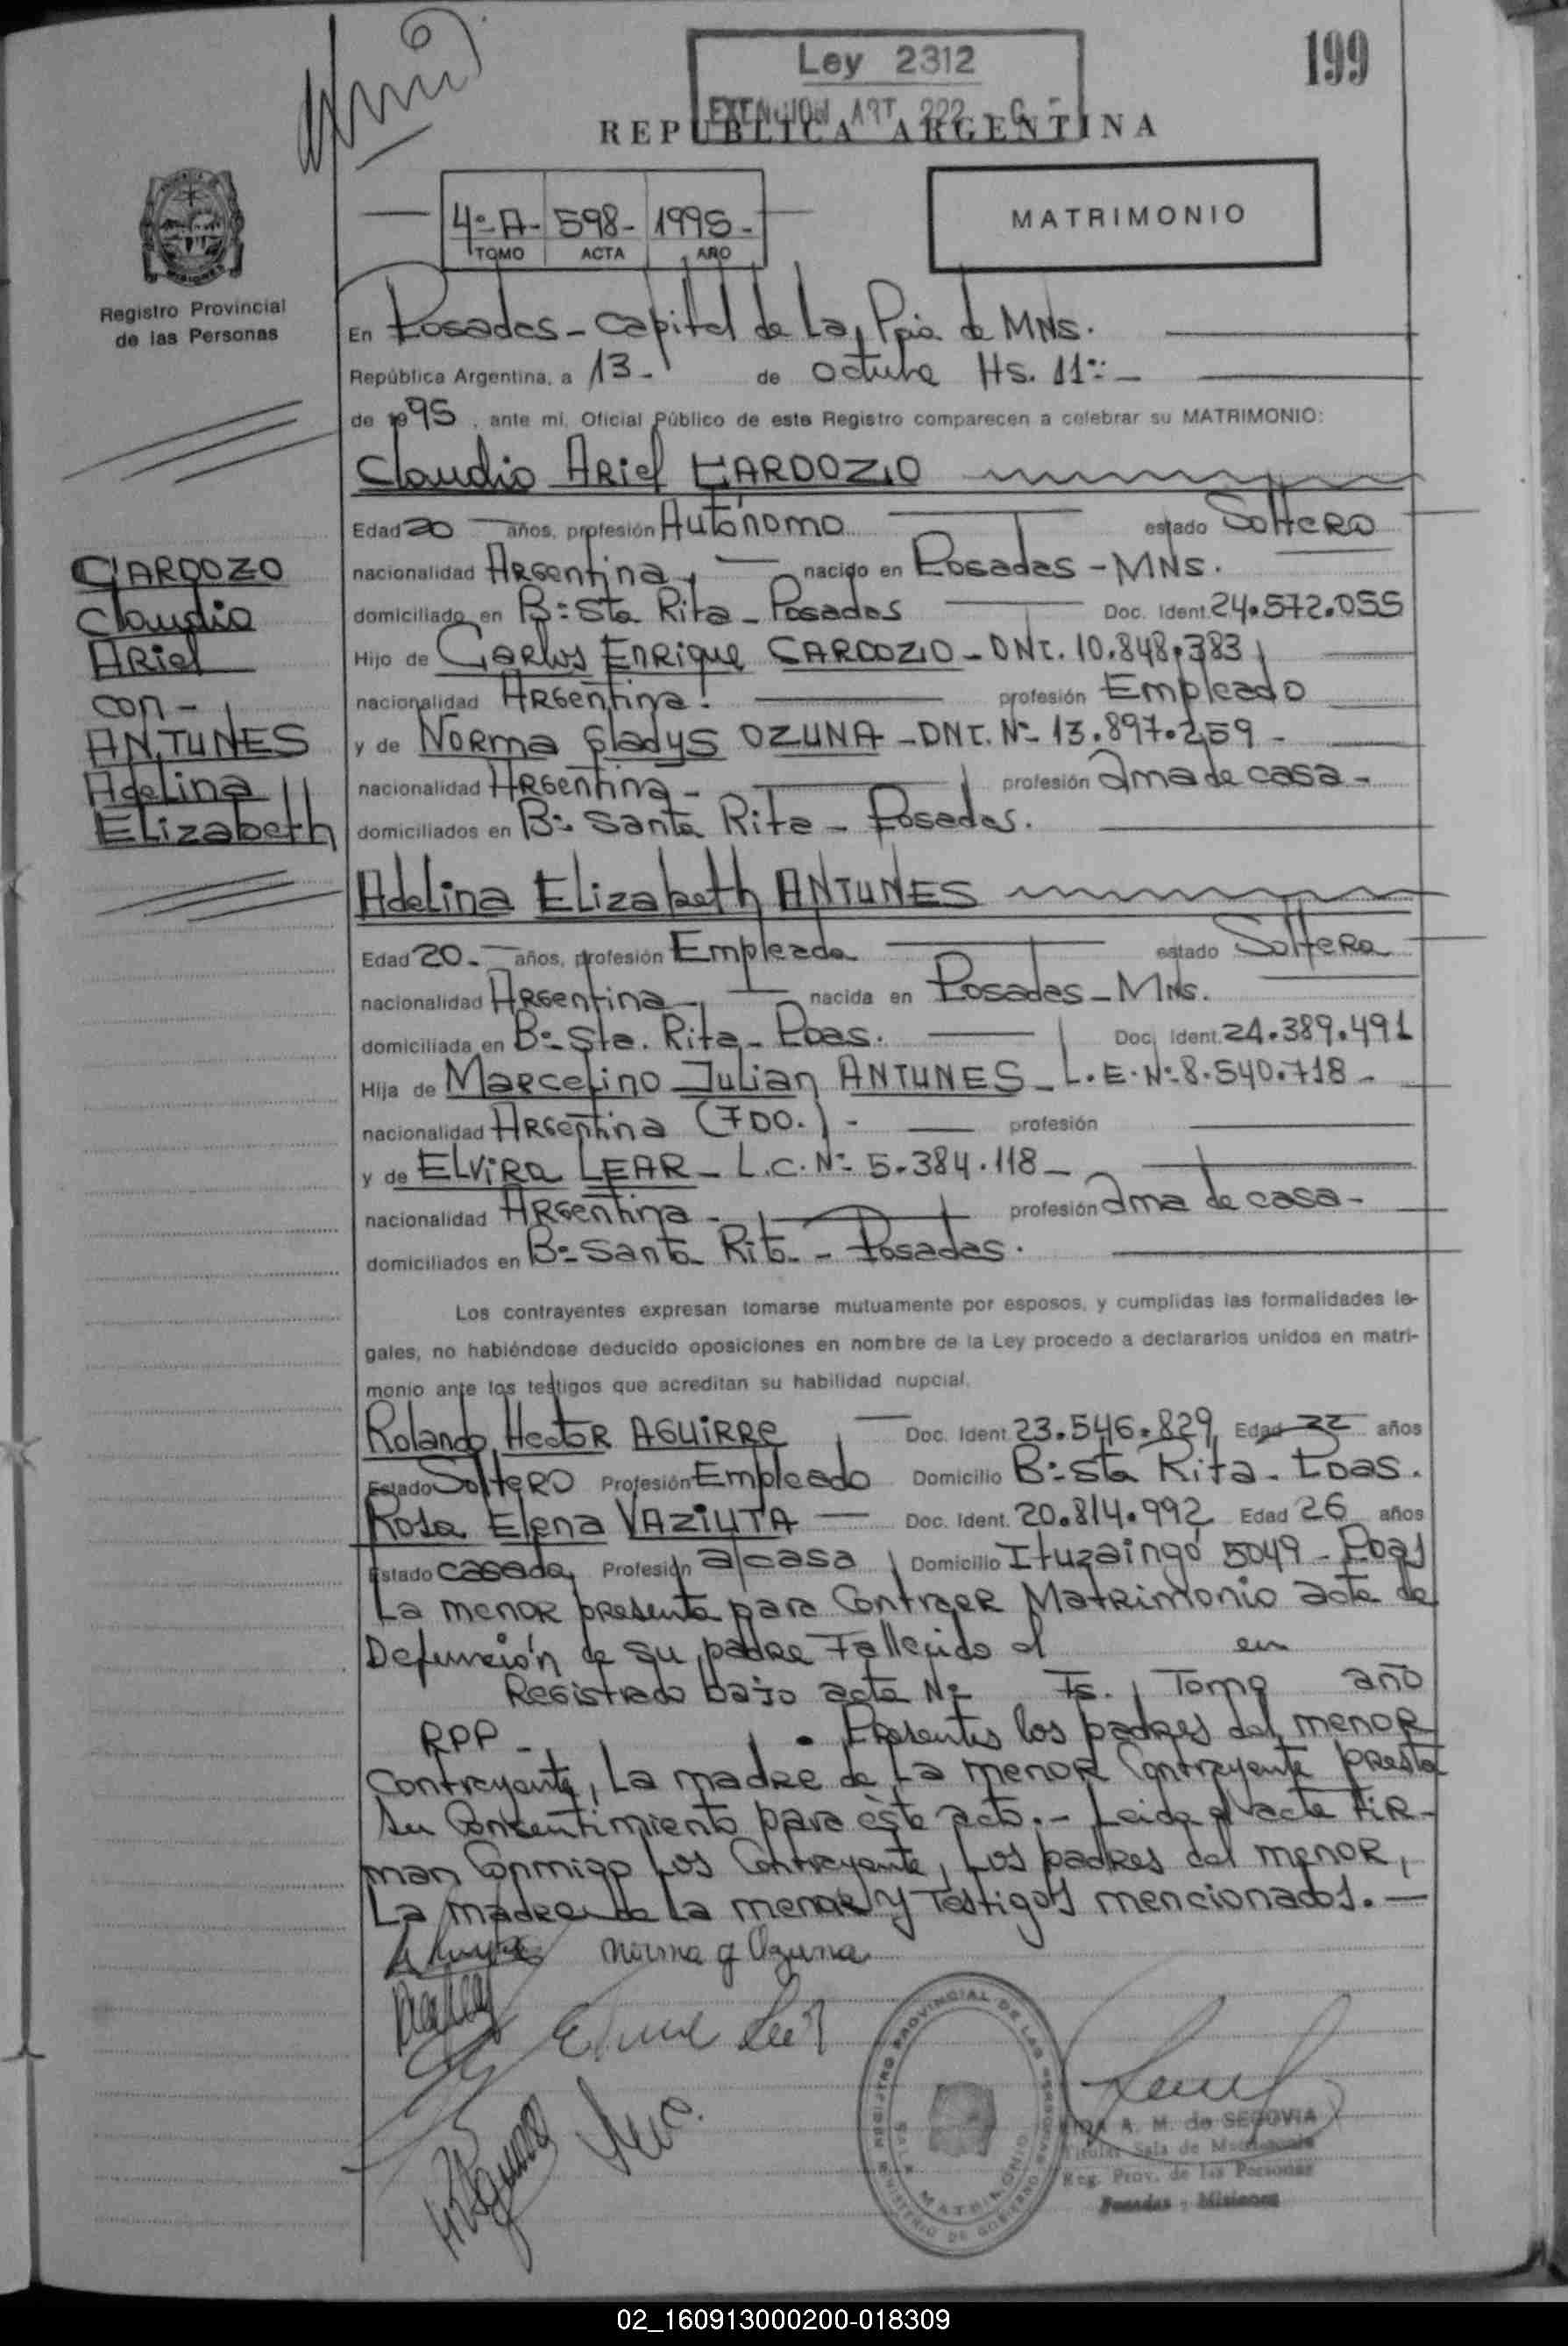 199
Ley 2312
EXENCION ART. 222
REPUBLICA ARGENTINA
4º A- 598- 1995-
TOMO ACTA AÑO
MATRIMONIO
MISIONES
Registro Provincial
de las Personas
En Posadas - Capital de La Pcia de MNs.
República Argentina, a 13- de octubre Hs. 11:-
de 1995, ante mi, Oficial Público de este Registro comparecen a celebrar su MATRIMONIO:
Claudio Ariel CARDOZO
Edad 20 años, profesión Autónomo estado Soltero
nacionalidad Argentina, nacido en Posadas - MNs.
domiciliado en Bº Sta Rita - Posadas Doc. Ident. 24.572.055
Hijo de Carlos Enrique CARDOZO - DNI. 10.848.383
nacionalidad Argentina. profesión Empleado
y de Norma Gladys OZUNA - DNI. Nº 13.897.259 -
nacionalidad Argentina - profesión Ama de casa -
domiciliados en Bº Santa Rita - Posadas.
CARDOZO
Claudio
Ariel
con -
ANTUNES
Adelina
Elizabeth
Adelina Elizabeth ANTUNES
Edad 20- años, profesión Empleada estado Soltera
nacionalidad Argentina - nacida en Posadas - MNs.
domiciliada en Bº Sta. Rita - Pdas. Doc. Ident. 24.389.491
Hija de Marcelino Julian ANTUNES - L.E. Nº 8.540.718 -
nacionalidad Argentina (FDO.) - profesión
y de ELVIRA LEAR - L.C. Nº 5.384.118 -
nacionalidad Argentina - profesión Ama de casa -
domiciliados en Bº Santa Rita - Posadas.
Los contrayentes expresan tomarse mutuamente por esposos, y cumplidas las formalidades le-
gales, no habiéndose deducido oposiciones en nombre de la Ley procedo a declararlos unidos en matri-
monio ante los testigos que acreditan su habilidad nupcial.
Rolando Hector AGUIRRE Doc. Ident. 23.546.829 Edad 22 años
Estado Soltero Profesión Empleado Domicilio Bº Sta Rita - Pdas.
Rosa Elena VAZIUTA Doc. Ident. 20.814.992 Edad 26 años
Estado casada Profesión a/casa Domicilio Ituzaingó 5049 - Pdas
La menor presenta para Contraer Matrimonio acta de
Defunción de su padre Fallecido el en
Registrado bajo acta Nº Fs. Tomo año
RPP - . Presentes los padres del menor
Contrayente, La madre de La menor Contrayente presta
su Consentimiento para éste acto.- Leida el acta Fir-
man Conmigo Los Contrayente, Los padres del menor,
La madre de la menor y Testigos mencionados. -
Norma g Ozuna
REGISTRO PROVINCIAL DE LAS PERSONAS
MINISTERIO DE GOBIERNO
MATRIMONIO
A. M. de SEGOVIA
Titular Sala de Matrimonio
Reg. Prov. de las Personas
Posadas - Misiones
02_160913000200-018309